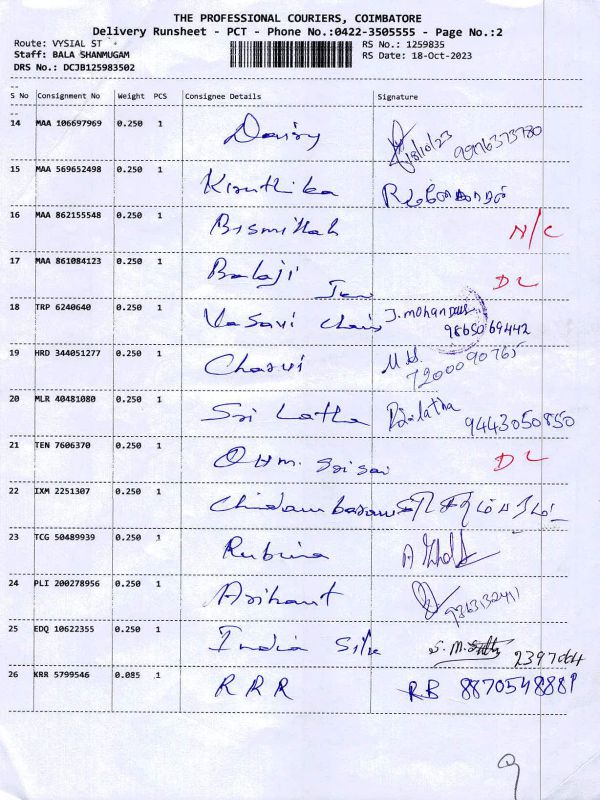 THE PROFESSIONAL COURIERS, COIMBATORE
Delivery Runsheet - PCT - Phone No.:0422-3505555 - Page No.:2
Route: VYSIAL ST RS No.: 1259835
Staff: BALA SHANMUGAM RS Date: 18-Oct-2023
DRS No.: DCJB125983502
S No Consignment No Weight PCS Consignee Details Signature
14 MAA 106697969 0.250 1 Daisy 18/10/23 9976373780
15 MAA 569652498 0.250 1 Kiruthika
16 MAA 862155548 0.250 1 Bismillah N/C
17 MAA 861084123 0.250 1 Balaji DL
18 TRP 6240640 0.250 1 Vasavi Chais J.mohan 9865069442
19 HRD 344051277 0.250 1 Charvi 7200090765
20 MLR 40481080 0.250 1 Sri Latha 9443050850
21 TEN 7606370 0.250 1 OHM. Sri sai DL
22 IXM 2251307 0.250 1 Chidambaram
23 TCG 50489939 0.250 1 Rubina
24 PLI 200278956 0.250 1 Arihant 9363132411
25 EDQ 10622355 0.250 1 India Silk
26 KRR 5799546 0.085 1 RRR RB 8870548881